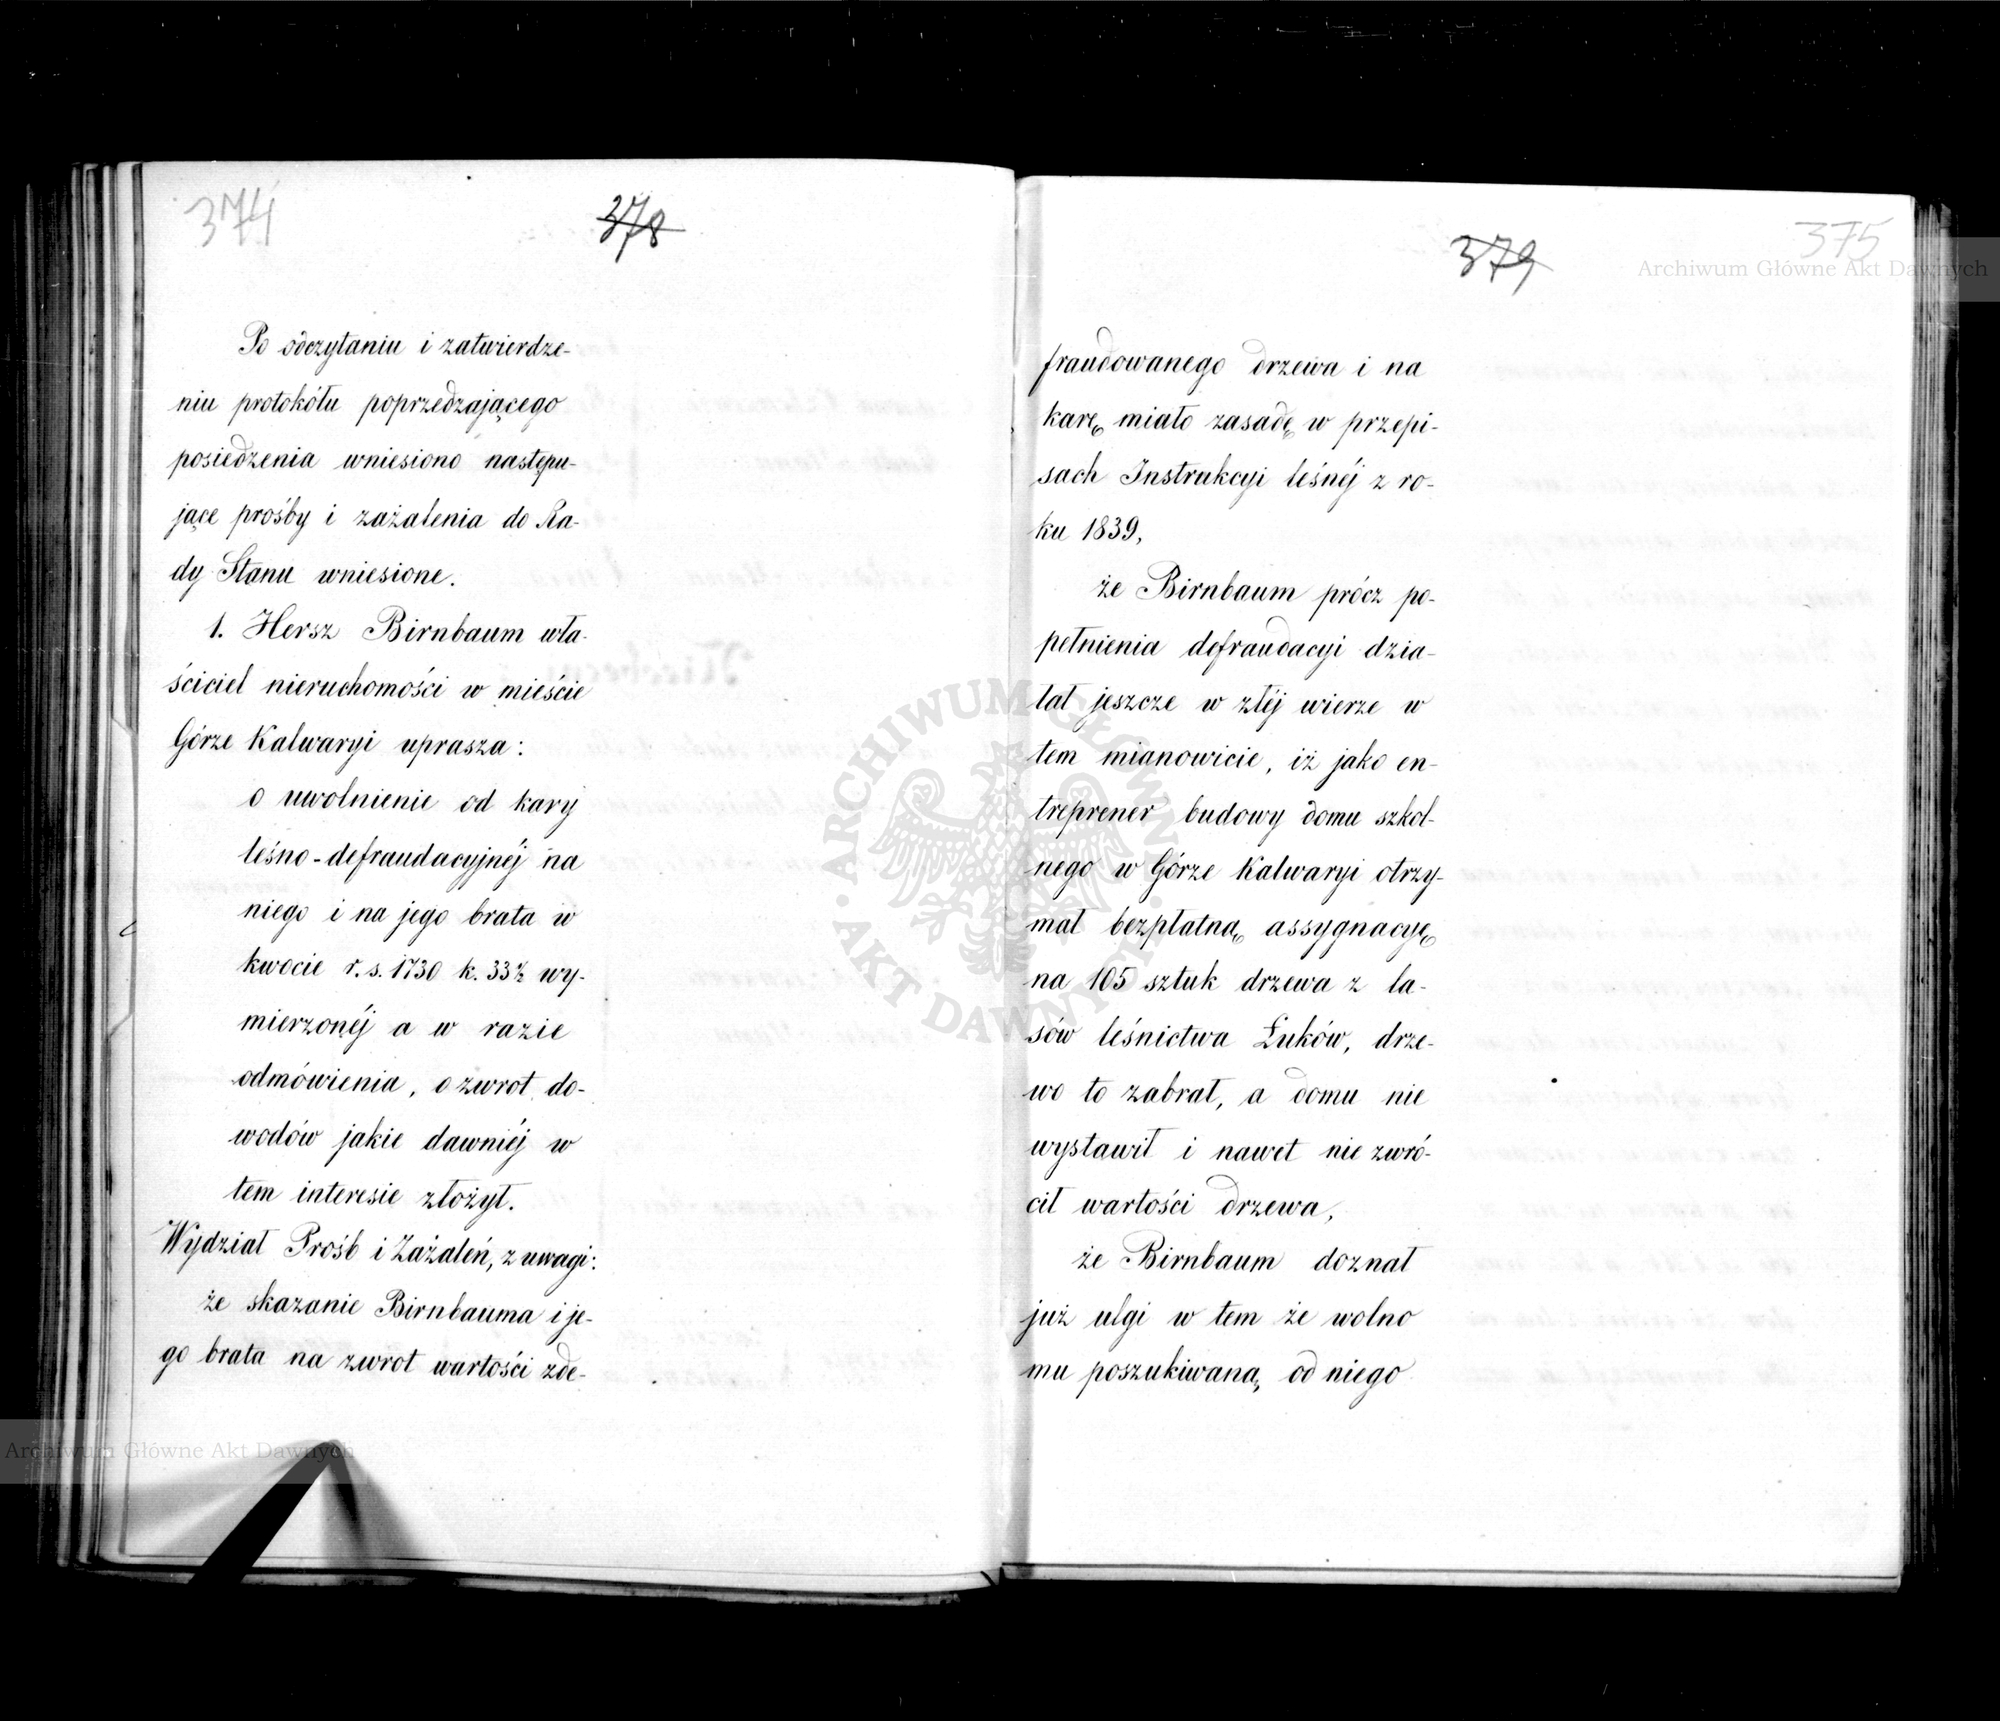 374
378
Po odczytaniu i zatwierdze-
niu protokółu poprzedzającego
posiedzenia wniesiono następu-
jące prośby i zażalenia do Ra-
dy Stanu wniesione.
1. Hersz Birnbaum wła-
ściciel nieruchomości w mieście
Górze Kalwaryi uprasza:
o uwolnienie od kary
leśno-defraudacyjnéj na
niego i na jego brata w
kwocie r. s. 1730 k. 33½ wy-
mierzonéj a w razie
odmówienia, o zwrot do-
wodów jakie dawniéj w
tem interesie złożył.
Wydział Prośb i Zażaleń, z uwagi:
że skazanie Birnbauma i je-
go brata na zwrot wartości zde-
379
375
fraudowanego drzewa i na
karę miało zasadę w przepi-
sach Instrukcyi leśnéj z ro-
ku 1839,
że Birnbaum prócz po-
pełnienia defraudacyi dzia-
łał jeszcze w złéj wierze w
tem mianowicie, iż jako en-
treprener budowy domu szkol-
nego w Górze Kalwaryi otrzy-
mał bezpłatną assygnacyę
na 105 sztuk drzewa z la-
sów leśnictwa Łuków, drze-
wo to zabrał, a domu nie
wystawił i nawet nie zwró-
cił wartości drzewa,
że Birnbaum doznał
już ulgi w tem że wolno
mu poszukiwaną od niego
Archiwum Główne Akt Dawnych
ARCHIWUM GŁÓWNE · AKT DAWNYCH ·
Archiwum Główne Akt Dawnych